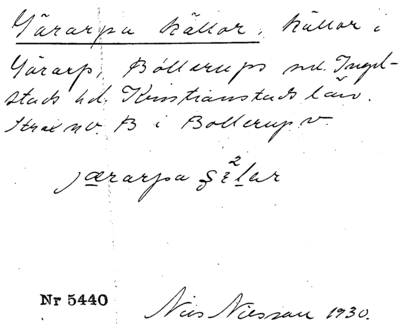 Gärarpa källor, Källor i
Gärarp, Bollerups sn. Ingel-
stads hd. Kristianstads län.
Strax nv B i Bollerup v.
jærarpa ɕɛ²lar
Nr 5440
Nils Nilsson 1930.